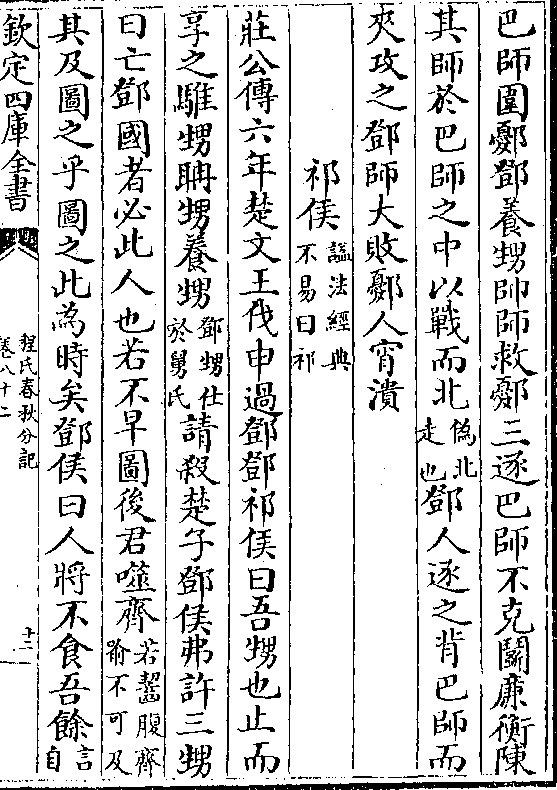 巴師圍鄾鄧養甥帥師救鄾三逐巴師不克鬭廉衡陳
其師於巴師之中以戰而北偽北走也鄧人逐之背巴師而
夾攻之鄧師大敗鄾人宵潰
祁侯諡法經典不易曰祁
莊公傳六年楚文王伐申過鄧鄧祁侯曰吾甥也止而
享之騅甥聃甥養甥鄧甥仕於舅氏請殺楚子鄧侯弗許三甥
曰亡鄧國者必此人也若不早圖後君噬齊若齧腹齊喻不可及
其及圖之乎圖之此為時矣鄧侯曰人將不食吾餘言自
欽定四庫全書
程氏春秋分記
卷八十二
十二